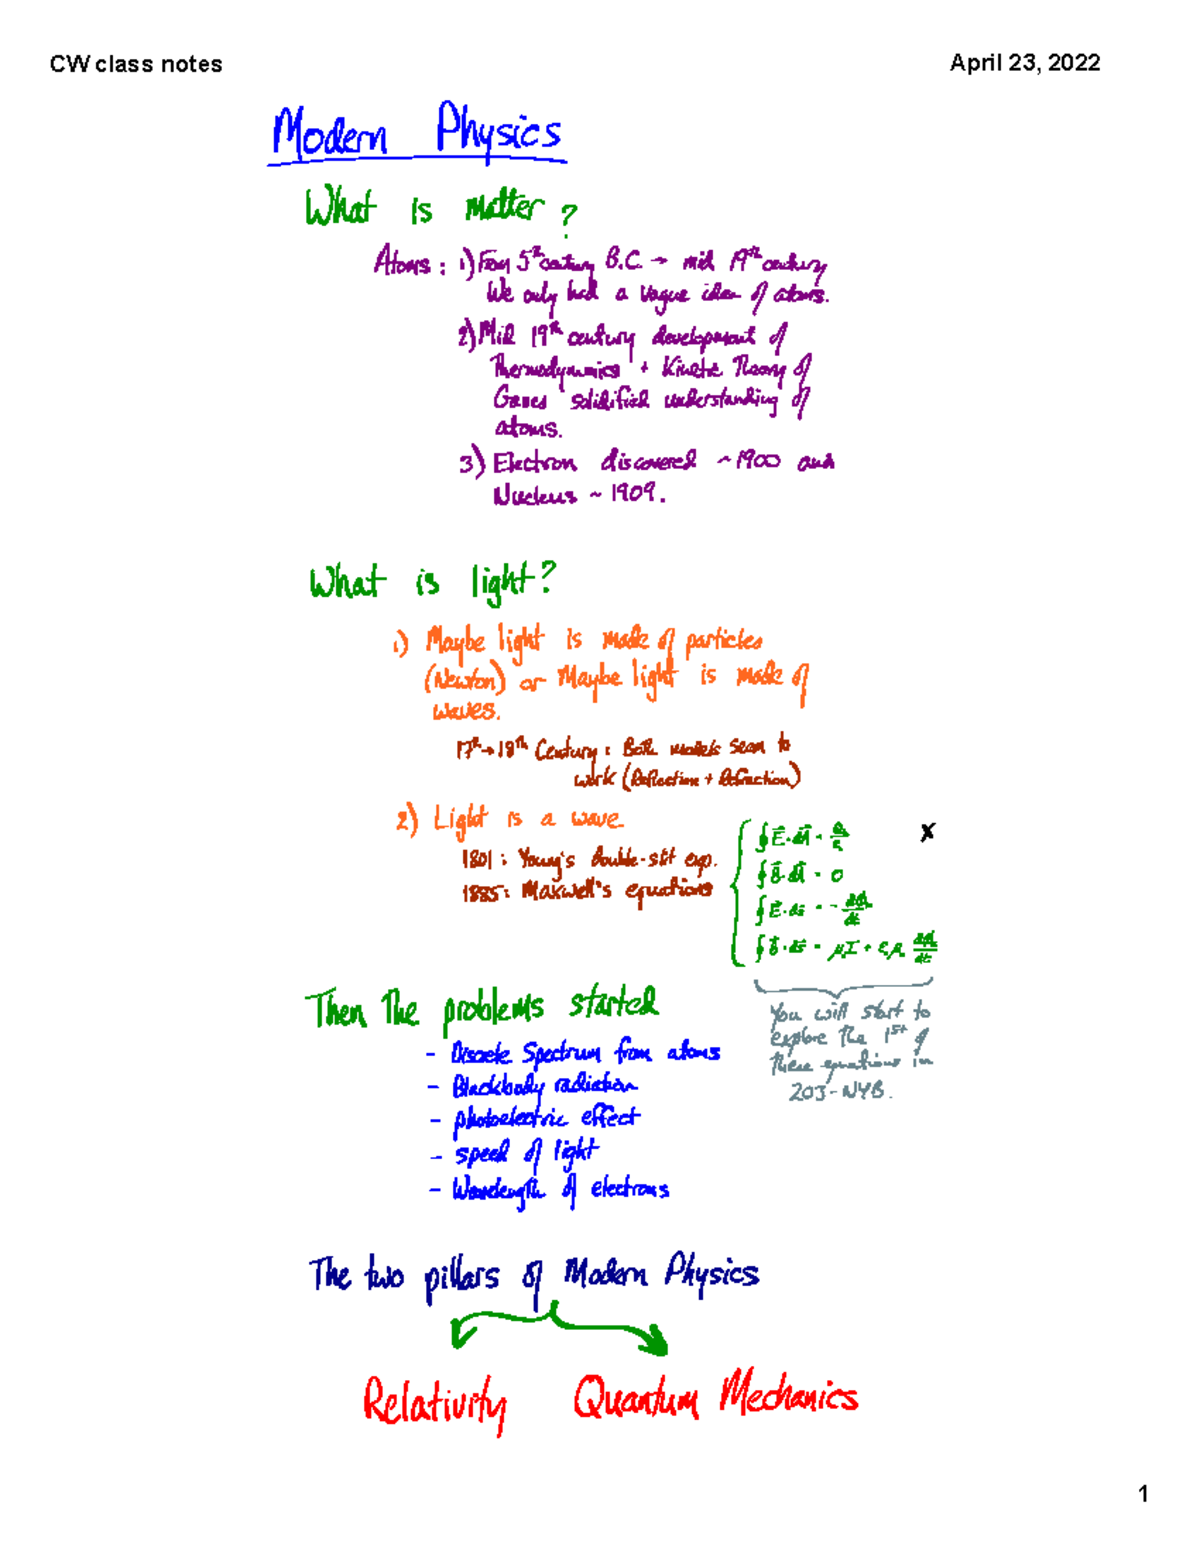 CW class notes
April 23, 2022
Modern Physics
What is matter?
Atoms: 1) From 5th century B.C. → mid 19th century
We only had a vague idea of atoms.
2) Mid 19th century development of
Thermodynamics + Kinetic Theory of
Gases solidified understanding of
atoms.
3) Electron discovered ~1900 and
Nucleus ~ 1909.
What is light?
1) Maybe light is made of particles
(Newton) or Maybe light is made of
waves.
17th → 18th Century: Both models seem to
work (Reflection + Refraction)
2) Light is a wave
1801: Young's double-slit exp.
1885: Maxwell's equations
∮E⃗·dA⃗ = Q/ε₀
x
∮B⃗·dA⃗ = 0
∮E⃗·ds⃗ = -dΦ/dt
∮B⃗·ds⃗ = μ₀I + ε₀μ₀ dΦ/dt
Then the problems started
- Discrete Spectrum from atoms
- Blackbody radiation
- photoelectric effect
- speed of light
- Wavelength of electrons
You will start to
explore the 1st of
these equations in
203-NYB.
The two pillars of Modern Physics
Relativity Quantum Mechanics
1